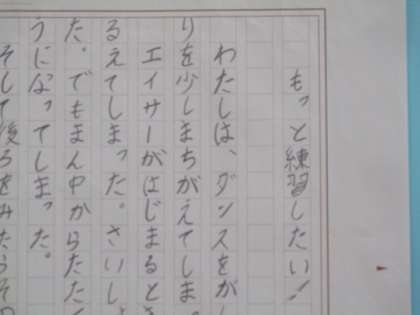 もっと練習したい!
わたしは、ダンスをが
りを少しまちがえてしま
エイサーがはじまると
るえてしまった。さいしょ
た。でもまん中からたた
うになってしまった。
そして後ろをみたらその